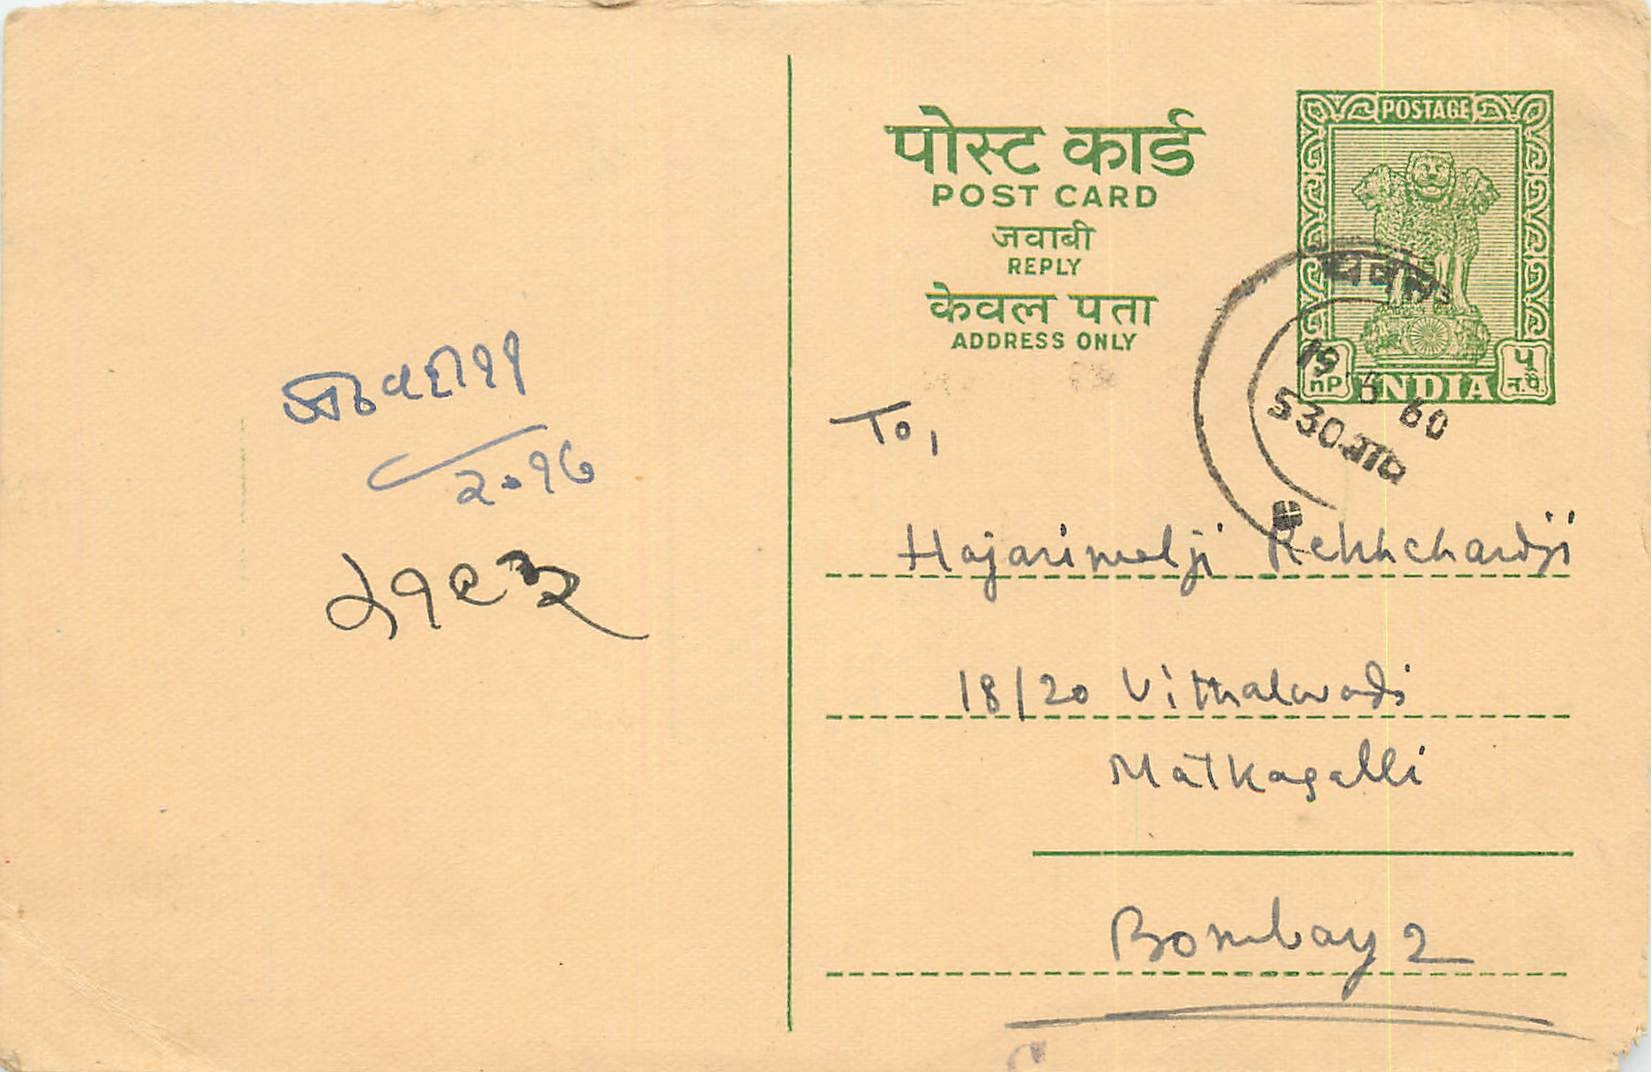 पोस्ट कार्ड
POST CARD
जवाबी
REPLY
केवल पता
ADDRESS ONLY
POSTAGE
nP INDIA ५ न.पै.
19 5 60
530
२०१७
To,
Hajarimalji
18/20 Vithalwadi
Matkagalli
Bombay 2